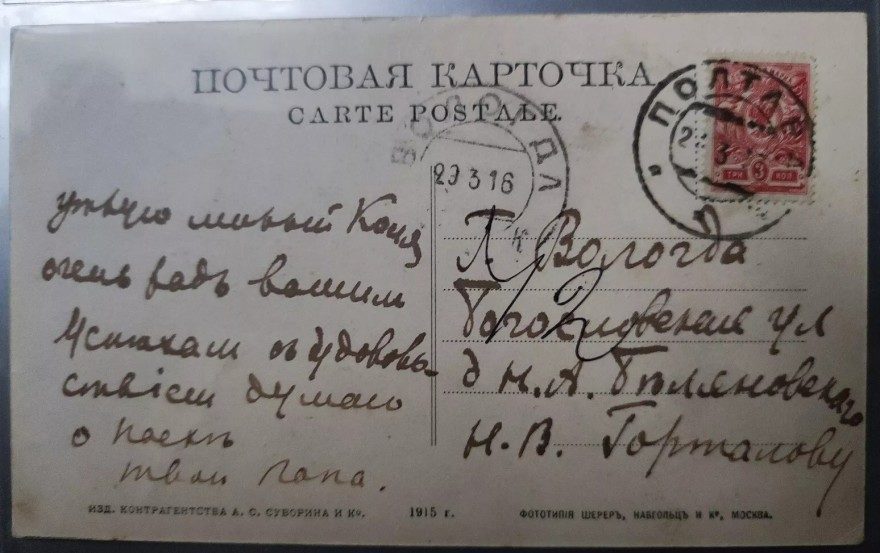 ПОЧТОВАЯ КАРТОЧКА.
CARTE POSTALE.
ВОЛОГДА
29 3 16
ПОЛТАВА
2
3
ТРИ 3 КОП
милый Коля
очень радъ вашим
съ удоволь-
ствіем думаю
о
твои папа.
Г. Вологда
Богословская ул
д Н. А. Бѣляновскаго
Н. В. Горталову
ИЗД. КОНТРАГЕНТСТВА А. С. СУВОРИНА И Кº. 1915 г. ФОТОТИПІЯ ШЕРЕРЪ, НАБГОЛЬЦЪ И Кº, МОСКВА.